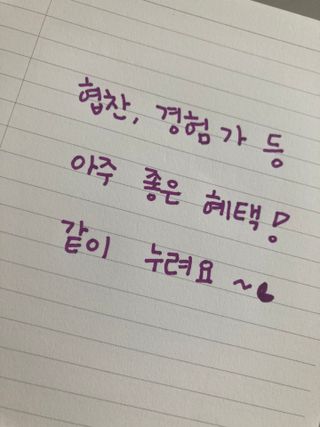 협찬, 경험가 등
아주 좋은 혜택!
같이 누려요 ~♥